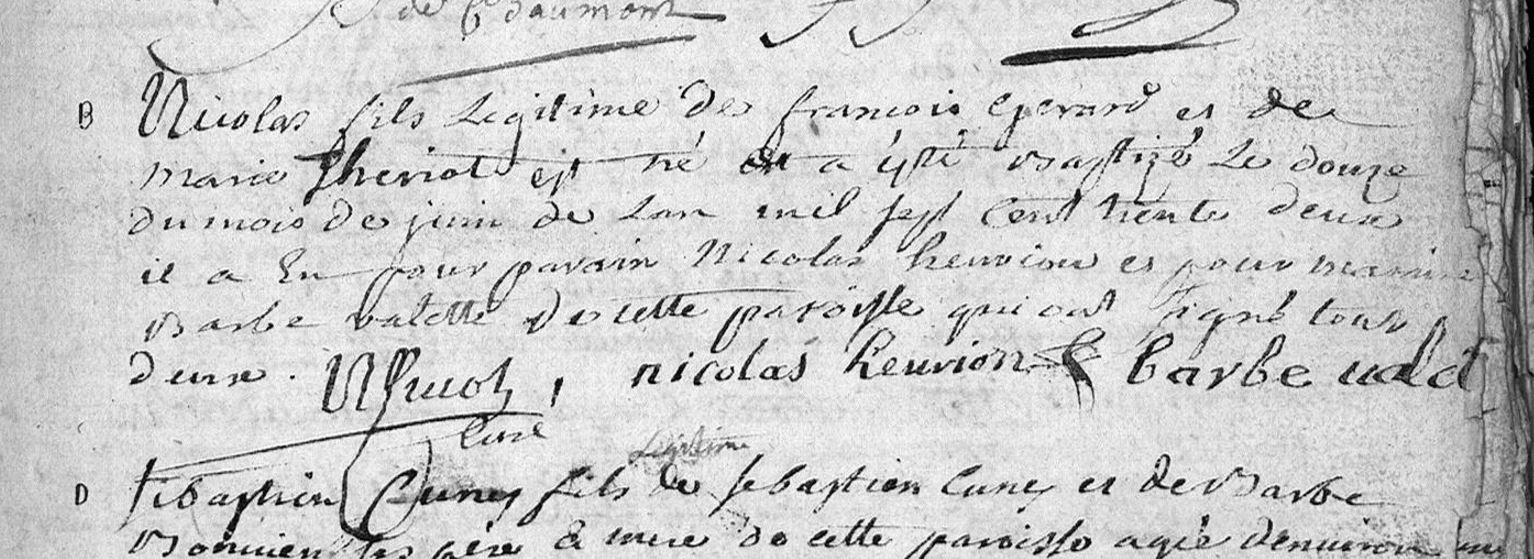 de C daumont
B Nicolas fils Legitime de francois Gerard et de
marie Theriot est né et a ésté Baptizé Le douze
du mois de juin de Lan mil sept Cent trente deux
il a Eu pour parain Nicolas henrion et pour maraine
Barbe valette de cette paroisse qui ont signé tous
deux. nicolas henrion barbe valet
Curé
Legitime
D sebastien Cuney fils de sebastien Cuney et de Barbe
ses père & mere de cette paroisse agé denviron un